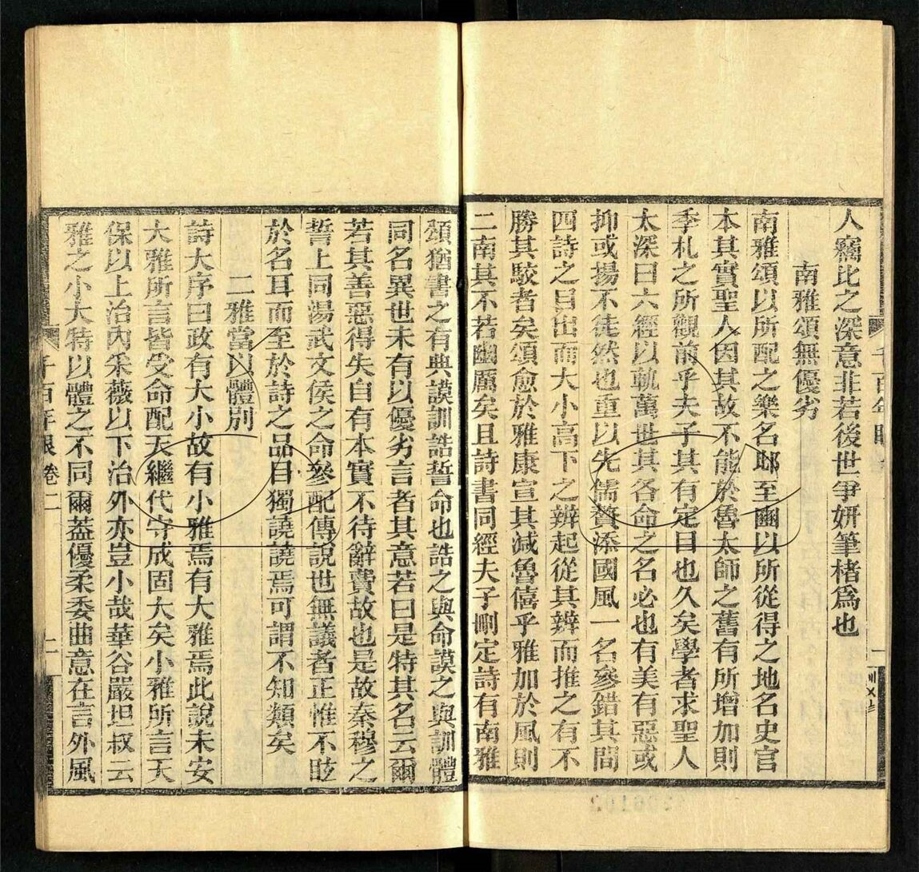 人竊比之深意非若後世爭妍筆楮爲也
南雅頌無優劣
南雅頌以所配之樂名邶至豳以所從得之地名史官
本其實聖人因其故不能於魯太師之舊有所增加則
季札之所觀前乎夫子其有定目也久矣學者求聖人
太深曰六經以軌萬世其各命之名必也有美有惡或
抑或揚不徒然也重以先儒贅添國風一名參錯其間
四詩之目出而大小高下之辨起從其辨而推之有不
勝其駁者矣頌愈於雅康宣其減魯僖乎雅加於風則
二南其不若豳厲矣且詩書同經夫子刪定詩有南雅
頌猶書之有典謨訓誥誓命也誥之與命謨之與訓體
同名異世未有以優劣言者其意若曰是特其名云爾
若其善惡得失自有本實不待辭費故也是故秦穆之
誓上同湯武文侯之命參配傅說世無議者正惟不眩
於名耳而至於詩之品目獨譊譊焉可謂不知類矣
二雅當以體別
詩大序曰政有大小故有小雅焉有大雅焉此說未安
大雅所言皆受命配天繼代守成固大矣小雅所言天
保以上治內采薇以下治外亦豈小哉華谷嚴坦叔云
雅之小大特以體之不同爾蓋優柔委曲意在言外風
千百年眼 卷二